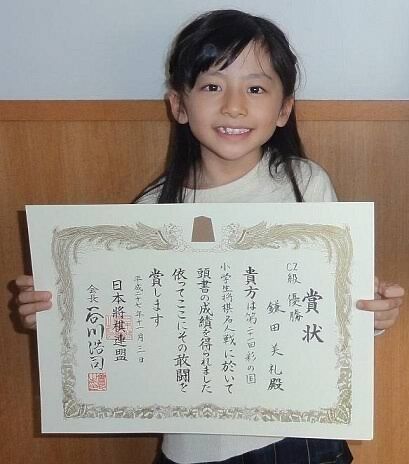 賞状
C2級 優勝
鎌田美礼殿
貴方は第二一回彩の国
小学生将棋名人戦に於いて
頭書の成績を得られました
依ってここにその敢闘を
賞します
平成二十七年十一月三日
日本将棋連盟
会長 谷川浩司